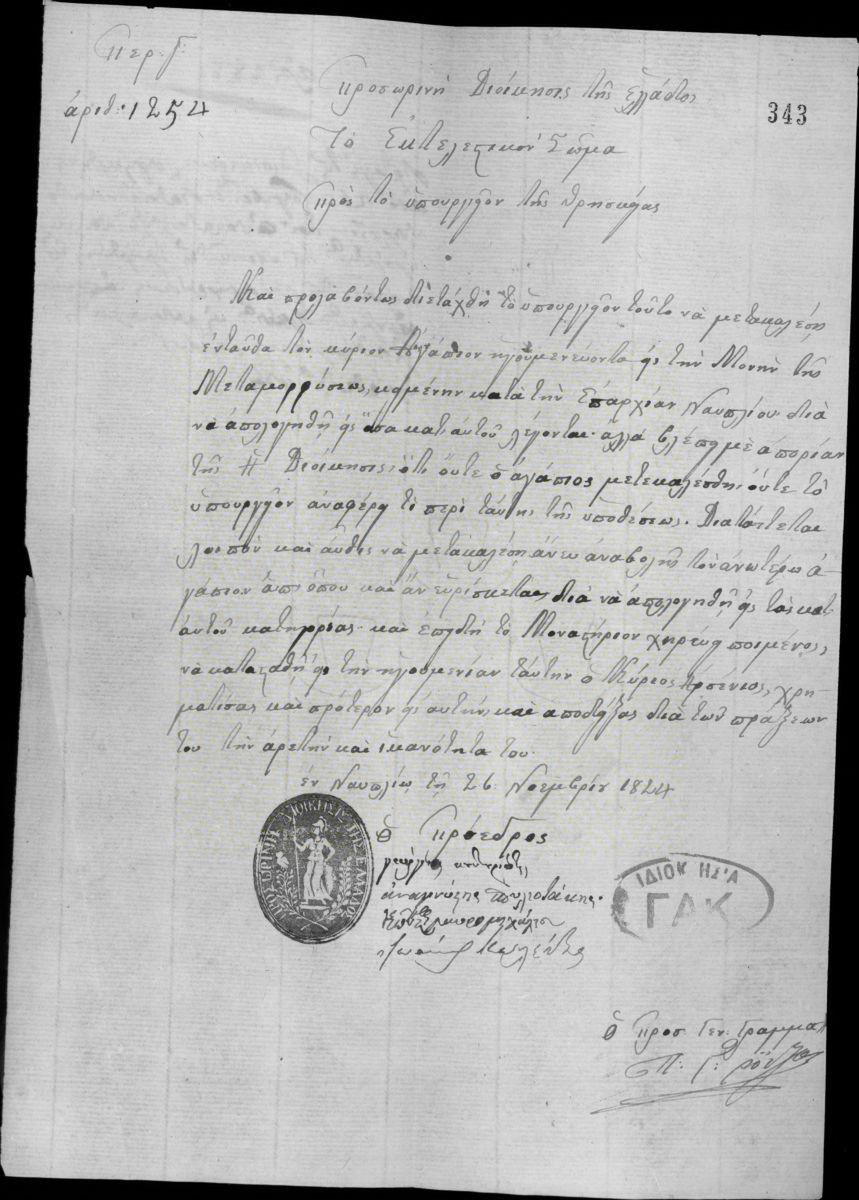 Περ. Γ.
ἀριθ: 1254
343
Προσωρινὴ Διοίκησις τῆς Ἑλλάδος
Τὸ Ἐκτελεστικὸν Σῶμα
Πρὸς τὸ ὑπουργεῖον τῆς Θρησκείας
Καὶ προλαβόντως διετάχθη τὸ ὑπουργεῖον τοῦτο νὰ μετακαλέσῃ
ἐνταῦθα τὸν κύριον Ἀγάπιον ἡγουμενεύοντα εἰς τὴν Μονὴν τῆς
Μεταμορφώσεως, κειμένην κατὰ τὴν Ἐπαρχίαν Ναυπλίου. διὰ
νὰ ἀπολογηθῇ εἰς ὅσα κατ' αὐτοῦ λέγονται. ἀλλὰ βλέπει μὲ ἀπορίαν
της ἡ Διοίκησις, ὅτι οὔτε ὁ ἀγάπιος μετεκαλέσθη, οὔτε τὸ
ὑπουργεῖον ἀναφέρει τὶ περὶ ταύτης τῆς ὑποθέσεως. Διατάττεται
λοιπὸν καὶ αὖθις νὰ μετακαλέσῃ ἄνευ ἀναβολῆς τὸν ἀνωτέρω ἀ-
γάπιον ἀπ' ὅπου καὶ ἂν εὑρίσκεται, διὰ νὰ ἀπολογηθῇ εἰς τὰς κατ'
αὐτοῦ κατηγορίας. καὶ ἐπειδὴ τὸ Μοναστήριον χηρεύει ποιμένος,
νὰ κατασταθῇ εἰς τὴν ἡγουμενίαν ταύτην ὁ Κύριος Ἀρσένιος, χρη-
ματίσας καὶ πρότερον εἰς αὐτήν, καὶ ἀποδείξας διὰ τῶν πράξεών
του τὴν ἀρετὴν καὶ ἱκανότητά του.
ἐν Ναυπλίῳ τῇ 26 Νοεμβρίου 1824
Ὁ Πρόεδρος
γεώργιος κουντουριότης
ἀναγνώστης Σπηλιοτάκης.
Ἰωάννης Κωλέττης
ΠΡΟΣΩΡΙΝΗ ΔΙΟΙΚΗΣΙΣ ΤΗΣ ΕΛΛΑΔΟΣ
ΙΔΙΟΚ ΗΣΙΑ
ΓΑΚ
Ὁ Προσ. Γεν. Γραμμα
Π. Γ. Ῥόδιος